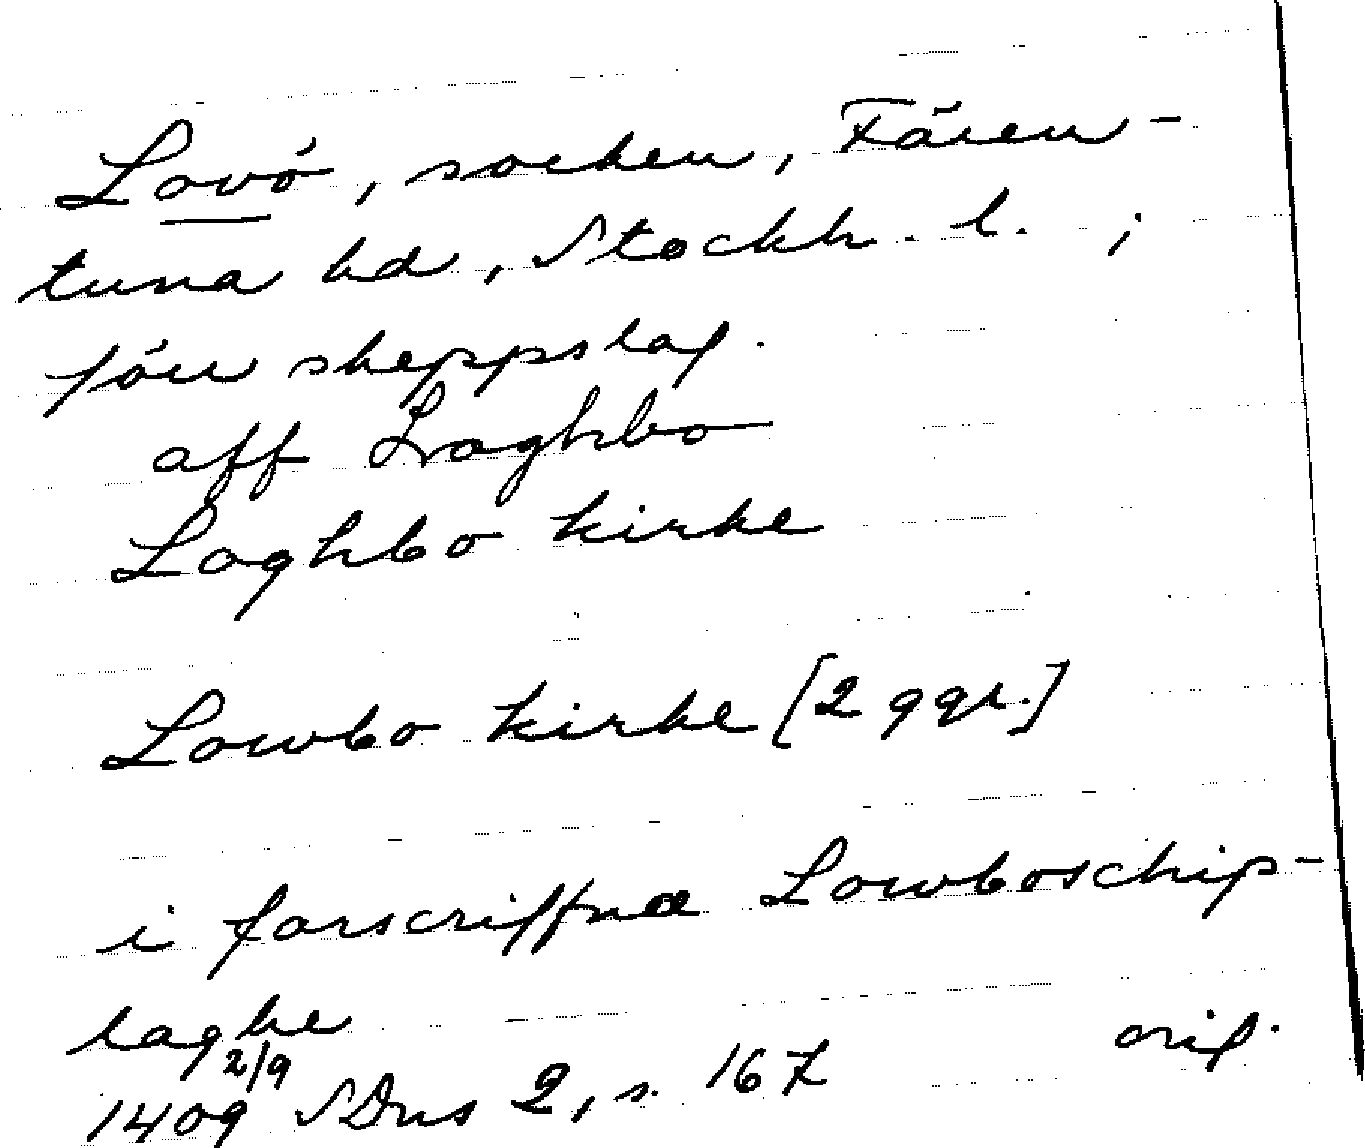 Lovö, socken, Fären-
tuna hd, Stockh. l. ;
förr skeppslag.
aff Loghbo
Loghbo kirke
Lowbo kirke [2 ggr.]
i forscriffnæ Lowboschip-
laghe
2/9
1409 SDns 2, s. 167 orig.